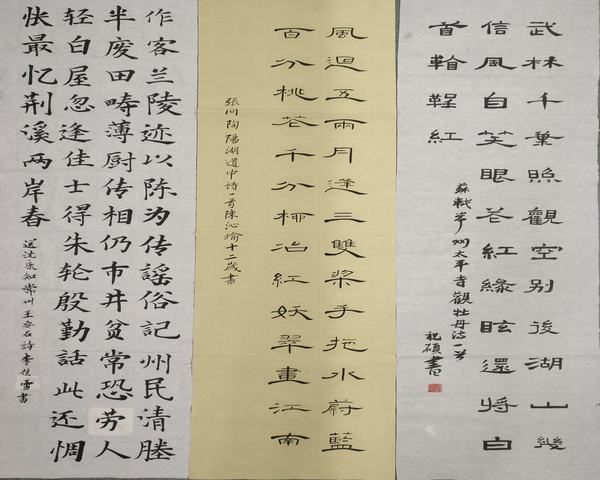 武林千葉照觀空別後湖山幾
信風自笑眼花紅綠眩還將白
首看鞓紅
蘇軾常州太平寺觀牡丹诗一首
祝碩書
風迴五兩月逢三雙槳手拖水蔚藍
百分桃花千分柳冶紅妖翠畫江南
張问陶陽湖道中詩一首陳沁瑜十二歲書
作客兰陵迹以陈为传謡俗记州民清塍
半废田畴薄厨传相仍市井贫常恐劳人
轻白屋忽逢佳士得朱轮殷勤話此还惆
怅最忆荆溪两岸春
送沈康知常州王安石詩李佳雪書